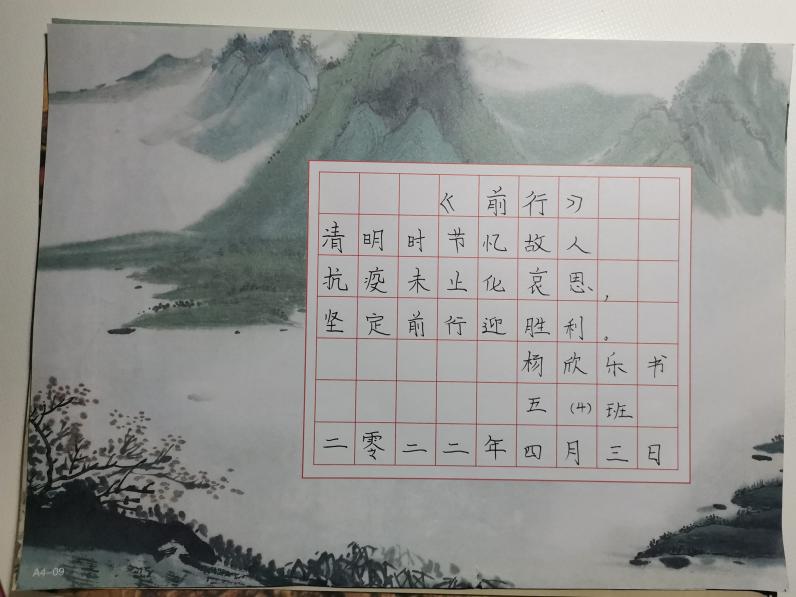 《前行》
清明时节忆故人
抗疫未止化哀恩，
坚定前行迎胜利。
杨欣乐书
五(4)班
二零二二年四月三日
A4-09